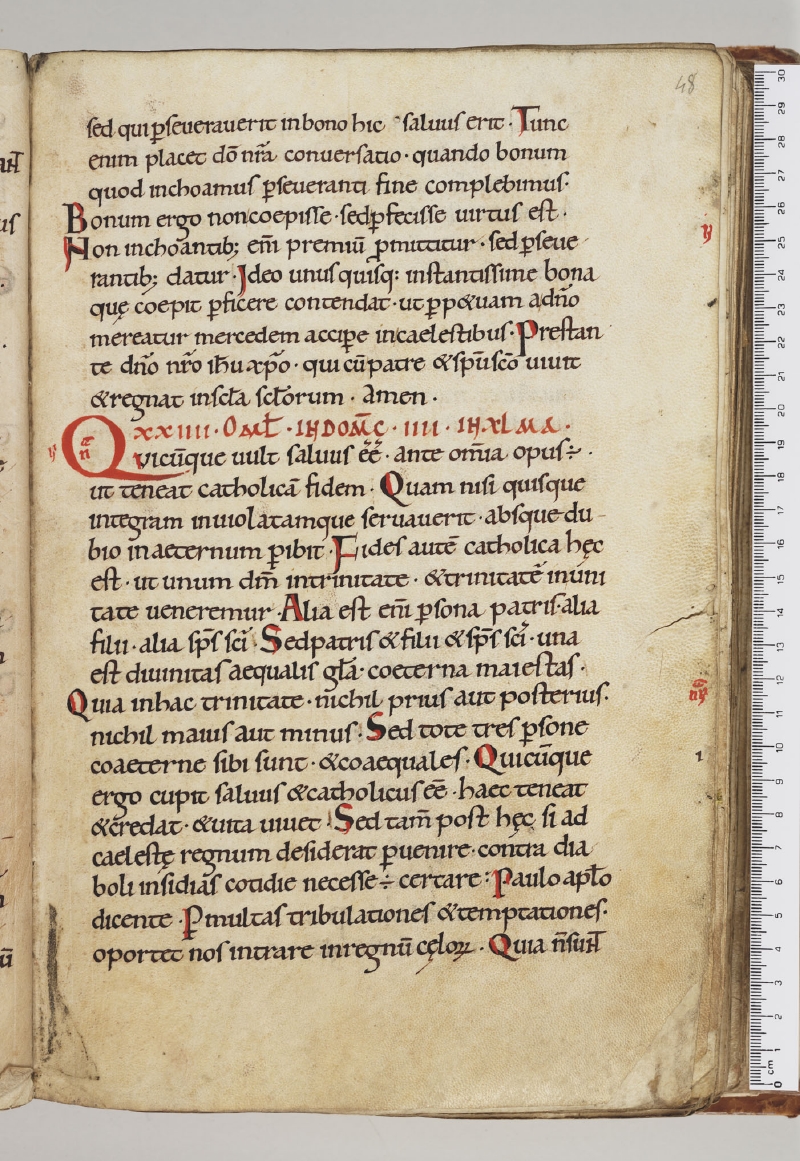 48
sed qui p̱seuerauerit in bono hic saluus erit· Tunc
enim placet dō nr̄a conuersatio· quando bonum
quod inchoamus p̱seueranti fine complebimus·
Bonum ergo non coepisse· sed p̱fecisse uirtus est·
Non inchoantib; em̄ premiū p̄mittitur· sed p̱seue
rantib; datur· Ideo unusquisq: instantissime bona
quę coepit p̱ficere contendat· ut p̱p&uam a dn̄o
mereatur mercedem accip̱e in caelestibus· Prestan
te dn̄o nr̄o ihū xp̄o· qui cū patre & sp̄u sc̄o uiuit
& regnat in scl̄a scl̄orum· Amen·
XXIIII· OML̄· IN DOM̄C· IIII· IN XLMA·
Quicūque uult saluus ēē· ante om̄ia opus ÷·
ut teneat catholicā fidem· Quam nisi quisque
integram inuiolatamque seruauerit· absque du
bio in aeternum p̱ibit· Fides autē catholica hęc
est· ut unum dm̄ in trinitate· & trinitatē in uni
tate ueneremur· Alia est em̄ p̱sona patris· alia
filii· alia sp̄s sc̄i· Sed patris & filii & sp̄s sc̄i· una
est diuinitas aequalis gl̄a· coeterna maiestas·
Quia in hac trinitate· nichil prius aut posterius·
nichil maius aut minus· Sed tote tres p̱sone
coaeterne sibi sunt· & coaequales· Quicūque
ergo cupit saluus & catholicus ēē· haec teneat
& credat· & uita uiuet· Sed tam̄ post hęc si ad
caelestę regnum desiderat p̱uenire· contra dia
boli insidias cotidie necesse ÷ certare: Paulo apl̄o
dicente· P̱ multas tribulationes & temptationes·
oportet nos intrare in regnū cęloꝝ· Quia n̄ sunt